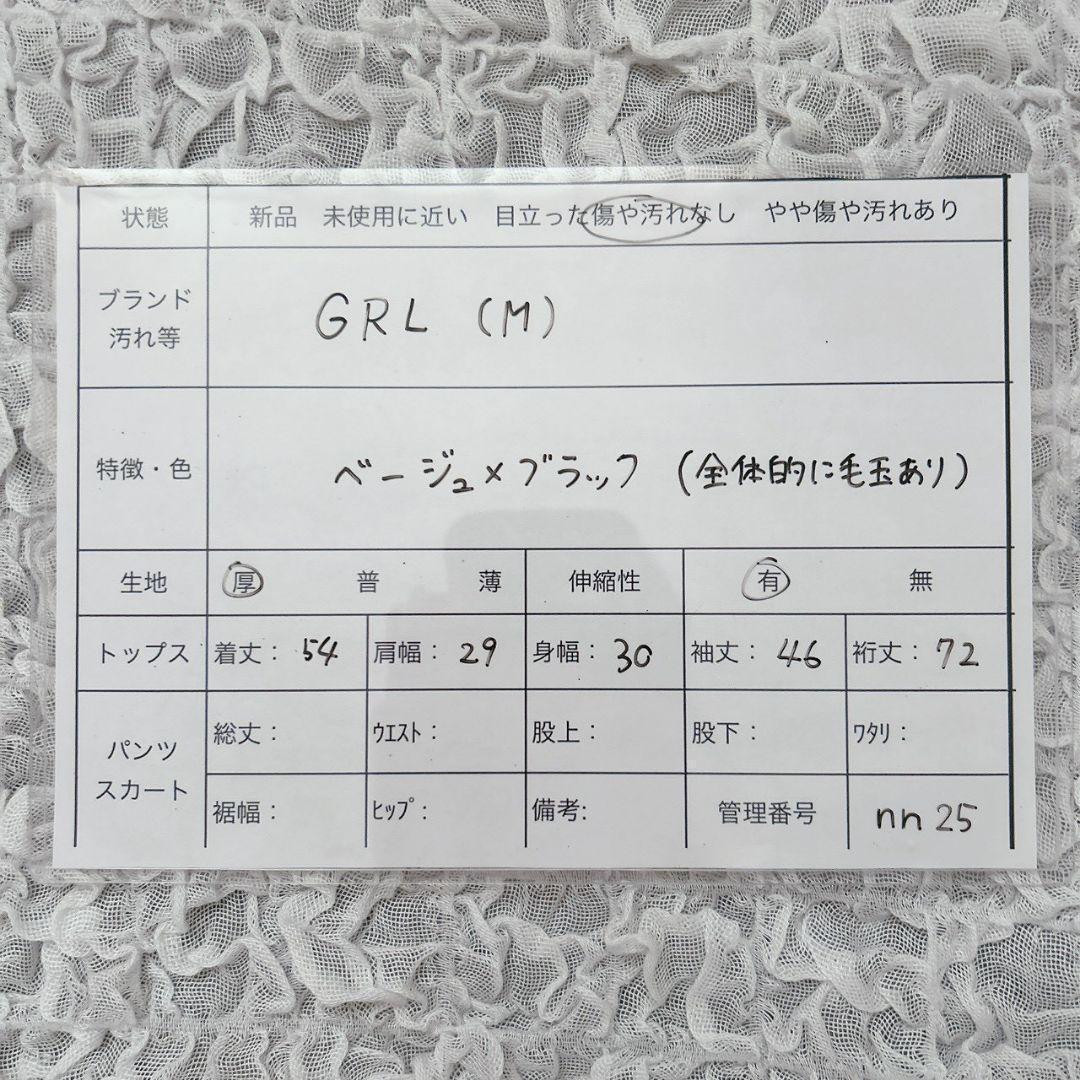 状態 新品 未使用に近い 目立った傷や汚れなし やや傷や汚れあり
ブランド
汚れ等
GRL (M)
特徴・色 ベージュ×ブラック (全体的に毛玉あり)
生地 厚 普 薄 伸縮性 有 無
トップス 着丈: 54 肩幅: 29 身幅: 30 袖丈: 46 裄丈: 72
パンツ
スカート
総丈: ウエスト: 股上: 股下: ワタリ:
裾幅: ヒップ: 備考: 管理番号 nn25